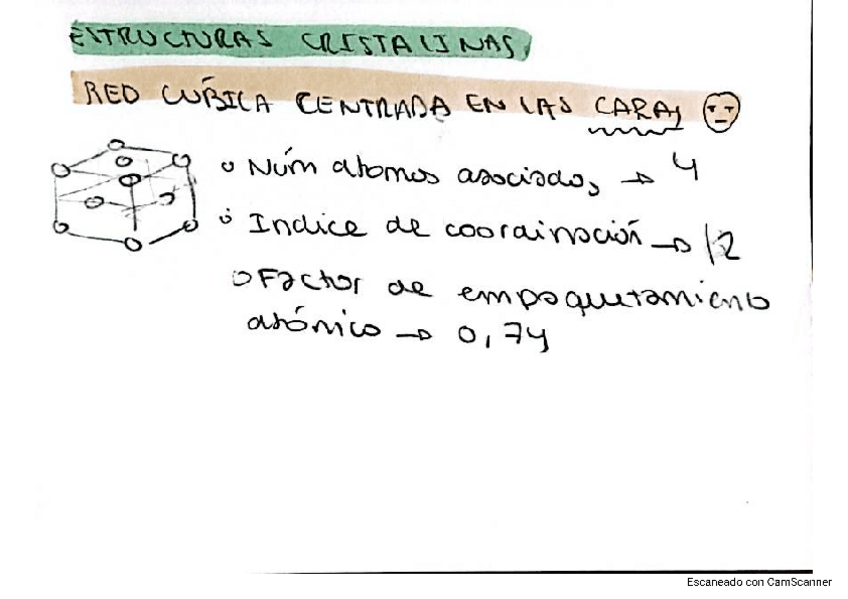 ESTRUCTURAS CRISTALINAS
RED CÚBICA CENTRADA EN LAS CARAS
Núm átomos asociados → 4
Indice de coordinación → 12
Factor de empaquetamiento
atómico → 0,74
Escaneado con CamScanner